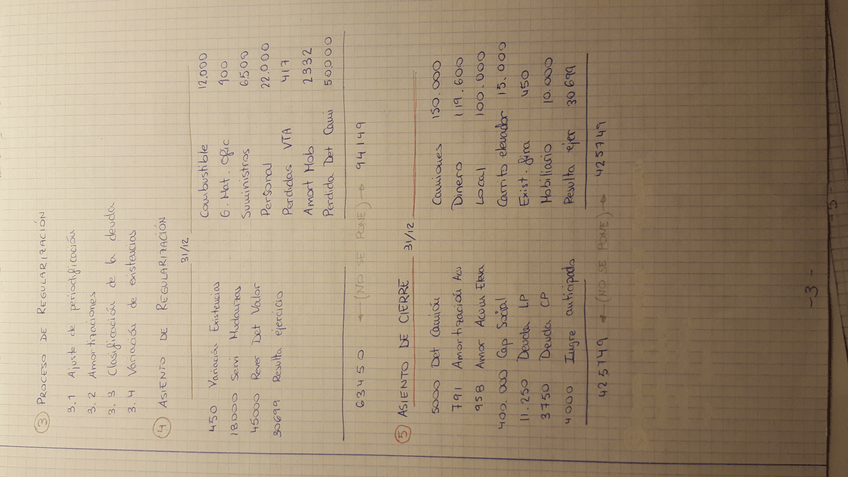 3 PROCESO DE REGULARIZACIÓN
3.1 Ajuste de periodificación
3.2 Amortizaciones
3.3 Clasificación de la deuda
3.4 Variación de existencias
4 ASIENTO DE REGULARIZACIÓN
31/12
450 Variación Existencias Combustible 12,000
18000 Servi Mudanzas G. Mat. Ofic 900
45000 Rever Det Valor Suministros 6500
30699 Resulta ejercicio Personal 22.000
Perdidas VTA 417
Amort Mob 2332
Perdida Det Cami 50,000
63450 ← (NO SE PONE) → 94149
5 ASIENTO DE CIERRE 31/12
5000 Det Camión Camiones 150.000
791 Amortización Acu Dinero 119.600
958 Amor Acum Local 100.000
400.000 Cap Social Carrito elevador 15.000
11.250 Deuda LP Exist. fira 450
3750 Deuda CP Mobiliario 10.000
4000 Ingre anticipado Resulta ejer 30699
425749 ← (NO SE PONE) → 425749
-3-